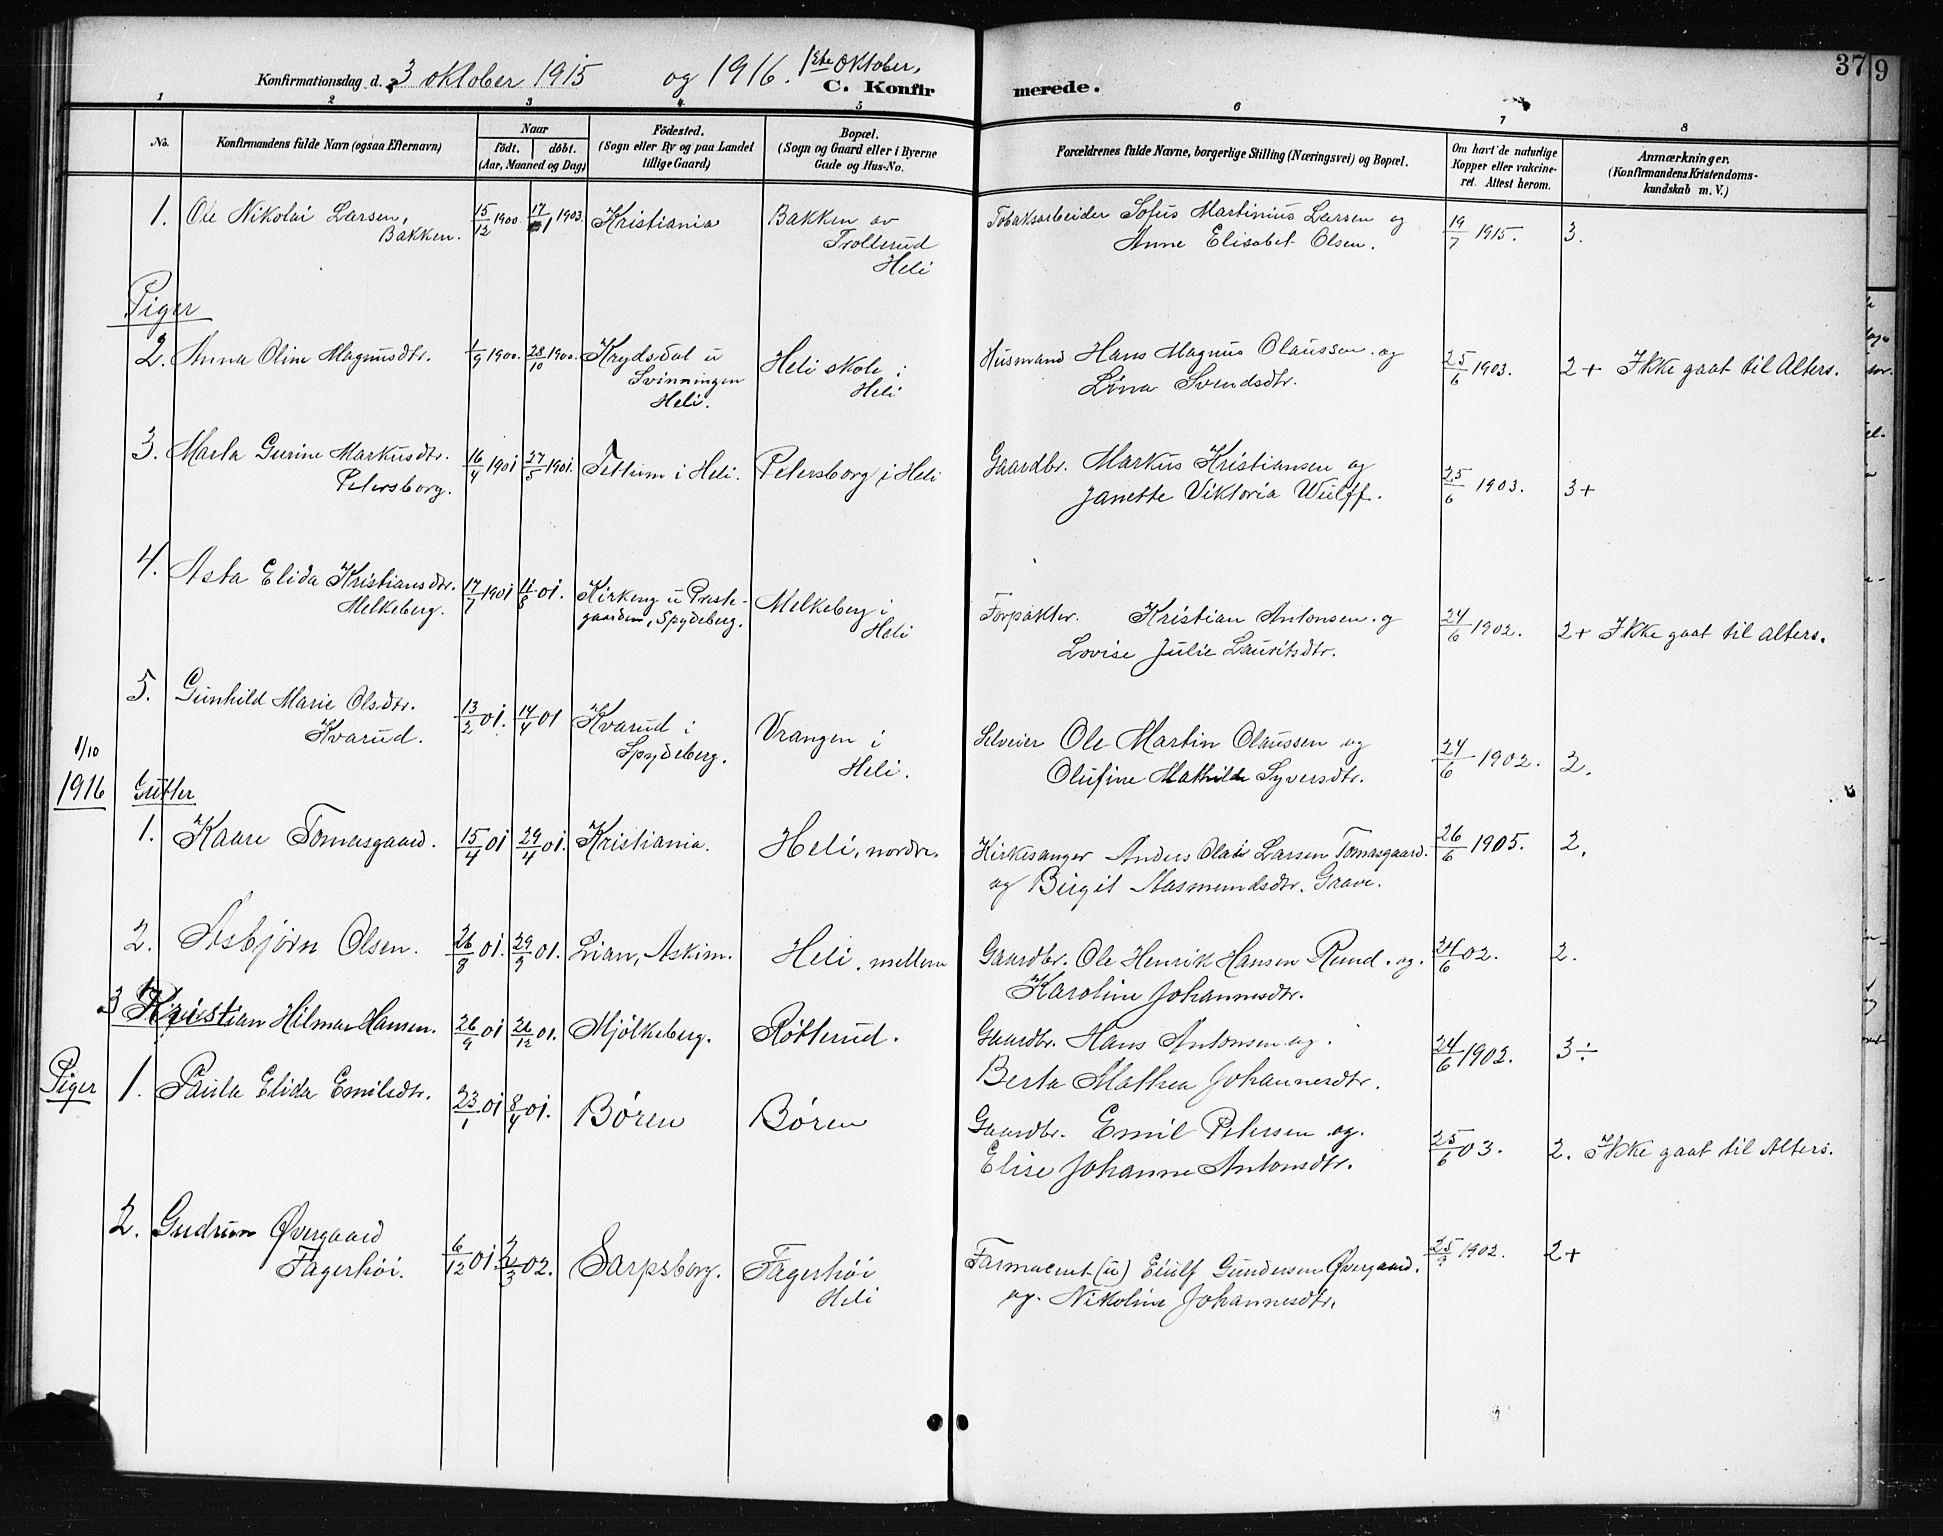 Konfirmationsdag d. 3 oktober 1915 og 1916. 1ste Oktober.
C. Konfirmerede.
37
9
1 2 3 4 5 6 7 8
No.
Konfirmandens fulde Navn (ogsaa Efternavn)
Naar
født. døbt.
(Aar, Maaned og Dag)
Fødested.
(Sogn eller By og paa Landet
tillige Gaard)
Bopæl.
(Sogn og Gaard eller i Byerne
Gade og Hus-No.
Forældrenes fulde Navne, borgerlige Stilling (Næringsvei) og Bopæl.
Om havt de naturlige
Kopper eller vakcine-
ret. Attest herom.
Anmærkninger.
(Konfirmandens Kristendoms-
kundskab m. V.)
1. Ole Nikolai Larsen, 15/12 1900 17/1 1903. Kristiania Bakken av Tobaksarbeider Sofus Martinius Larsen og 19/7 1915. 3.
Bakken. Trollerud Anne Elisabet Olsen.
Heli
Piger
2. Anna Oline Magnusdtr. 1/9 1900. 28/10 1900. Krydsdal u Heli skole i Husmand Hans Magnus Olaussen og 25/6 1903. 2+ Ikke gaat til Alters.
Svinningen Heli Lina Svendsdtr.
Heli.
3. Marta Gurine Markusdtr. 16/4 1901 27/5 1901. Tettum i Heli. Petersborg i Heli Gaardbr. Markus Kristiansen og 25/6 1903. 3+
Petersborg. Janette Viktoria Wulff.
4. Asta Elida Kristiansdtr. 17/7 1901 11/8 01. Kirkeng u Preste- Melkeberg i Forpakter Kristian Antonsen og 24/6 1902. 2+ Ikke gaat til alters.
Melkeberg. gaarden, Spydeberg. Heli Lovise Julie Lauritsdtr.
5. Gunhild Marie Olsdtr. 13/2 01. 14/4 01 Kvarud i Vrangen i Selveier Ole Martin Olaussen og 24/6 1902. 2.
Kvarud. Spydeberg. Heli. Olufine Mathilde Syversdtr.
1/10
1916 Gutter
1. Kaare Tomasgaard. 15/4 01 29/4 01. Kristiania. Heli, nordre. Kirkesanger Anders Olai Larsen Tomasgaard. 26/6 1905. 2.
og Birgit Aasmundsdtr. Grave.
2. Asbjørn Olsen. 26/8 01. 29/9 01. Lian, Askim. Heli, mellem Gaardbr. Ole Henrik Hansen Rund. og. 24/6 02. 2.
Karoline Johannesdtr.
3 Kristian Hilmar Hansen. 26/9 01 26/12 01. Mjølkeberg. Røtterud. Gaardbr. Hans Antonsen og. 24/6 1902. 3÷
Berta Mathea Johannesdtr.
Piger 1. Paula Elida Emilsdtr. 23/1 01 8/4 01. Børen Børen Gaardbr. Emil Petersen og. 25/6 03. 2. Ikke gaat til Alters.
Elise Johanne Antonsdtr.
2. Gudrun Øvergaard 6/12 01. 2/3 02. Sarpsborg. Fagerhøi Farmaceut (u) Eiulf Gundersen Øvergaard. 25/9 1902. 2+
Fagerhøi. Heli og. Nikoline Johannesdtr.